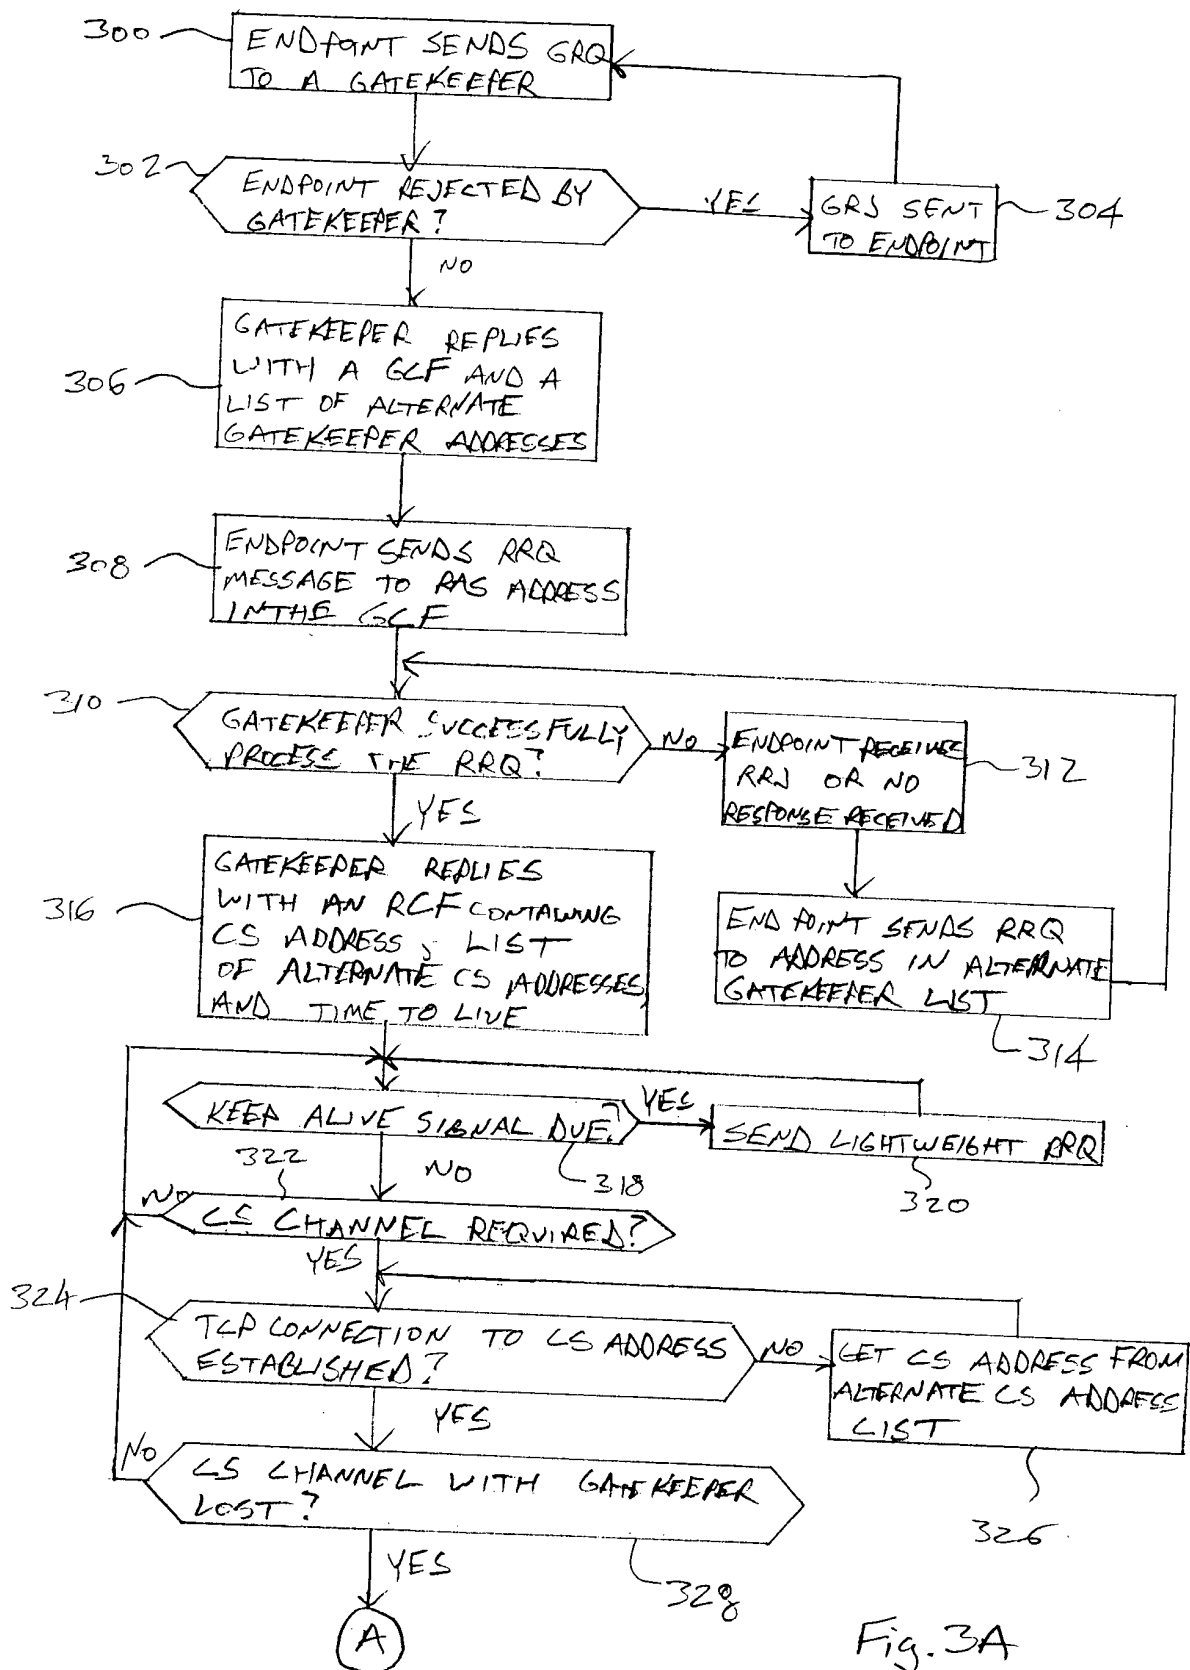 300
ENDPOINT SENDS GRQ
TO A GATEKEEPER
302
ENDPOINT REJECTED BY
GATEKEEPER?
YES
GRJ SENT
TO ENDPOINT
304
NO
306
GATEKEEPER REPLIES
WITH A GCF AND A
LIST OF ALTERNATE
GATEKEEPER ADDRESSES
308
ENDPOINT SENDS RRQ
MESSAGE TO RAS ADDRESS
IN THE GCF
310
GATEKEEPER SUCCESSFULLY
PROCESS THE RRQ?
NO
ENDPOINT RECEIVES
RRJ OR NO
RESPONSE RECEIVED
312
YES
316
GATEKEEPER REPLIES
WITH AN RCF CONTAINING
CS ADDRESS, LIST
OF ALTERNATE CS ADDRESSES,
AND TIME TO LIVE
ENDPOINT SENDS RRQ
TO ADDRESS IN ALTERNATE
GATEKEEPER LIST
314
KEEP ALIVE SIGNAL DUE?
YES
SEND LIGHTWEIGHT RRQ
318
320
NO
322
NO
CS CHANNEL REQUIRED?
YES
324
TCP CONNECTION TO CS ADDRESS
ESTABLISHED?
NO
GET CS ADDRESS FROM
ALTERNATE CS ADDRESS
LIST
326
YES
NO
CS CHANNEL WITH GATEKEEPER
LOST?
328
YES
A
Fig. 3A